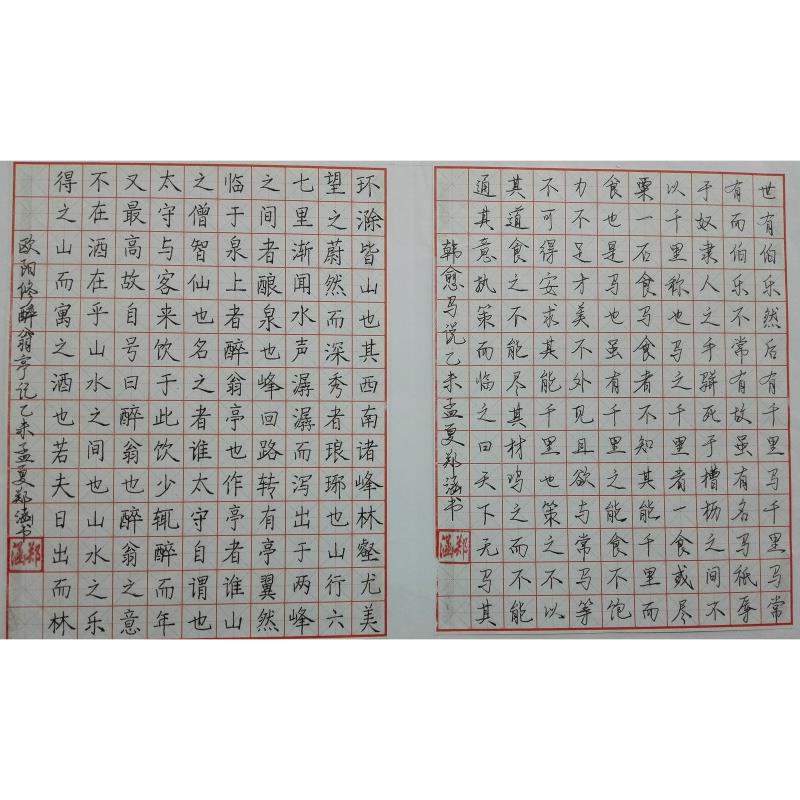 世有伯乐然后有千里马千里马常
有而伯乐不常有故虽有名马祇辱
于奴隶人之手骈死于槽枥之间不
以千里称也马之千里者一食或尽
粟一石食马食者不知其能千里而
食也是马也虽有千里之能食不饱
力不足才美不外见且欲与常马等
不可得安求其能千里也策之不以
其道食之不能尽其材鸣之而不能
通其意执策而临之曰天下无马其
韩愈马说乙未孟夏郑涵书
郑涵
环滁皆山也其西南诸峰林壑尤美
望之蔚然而深秀者琅琊也山行六
七里渐闻水声潺潺而泻出于两峰
之间者酿泉也峰回路转有亭翼然
临于泉上者醉翁亭也作亭者谁山
之僧智仙也名之者谁太守自谓也
太守与客来饮于此饮少辄醉而年
又最高故自号曰醉翁也醉翁之意
不在酒在乎山水之间也山水之乐
得之山而寓之酒也若夫日出而林
欧阳修醉翁亭记乙未孟夏郑涵书
郑涵